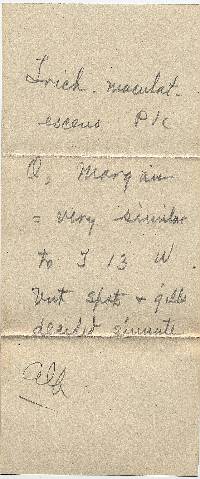 Trich. maculat-
escens Pk
O, Margin
= very similar
to J 13 W
but spots & gills
decided sinuate